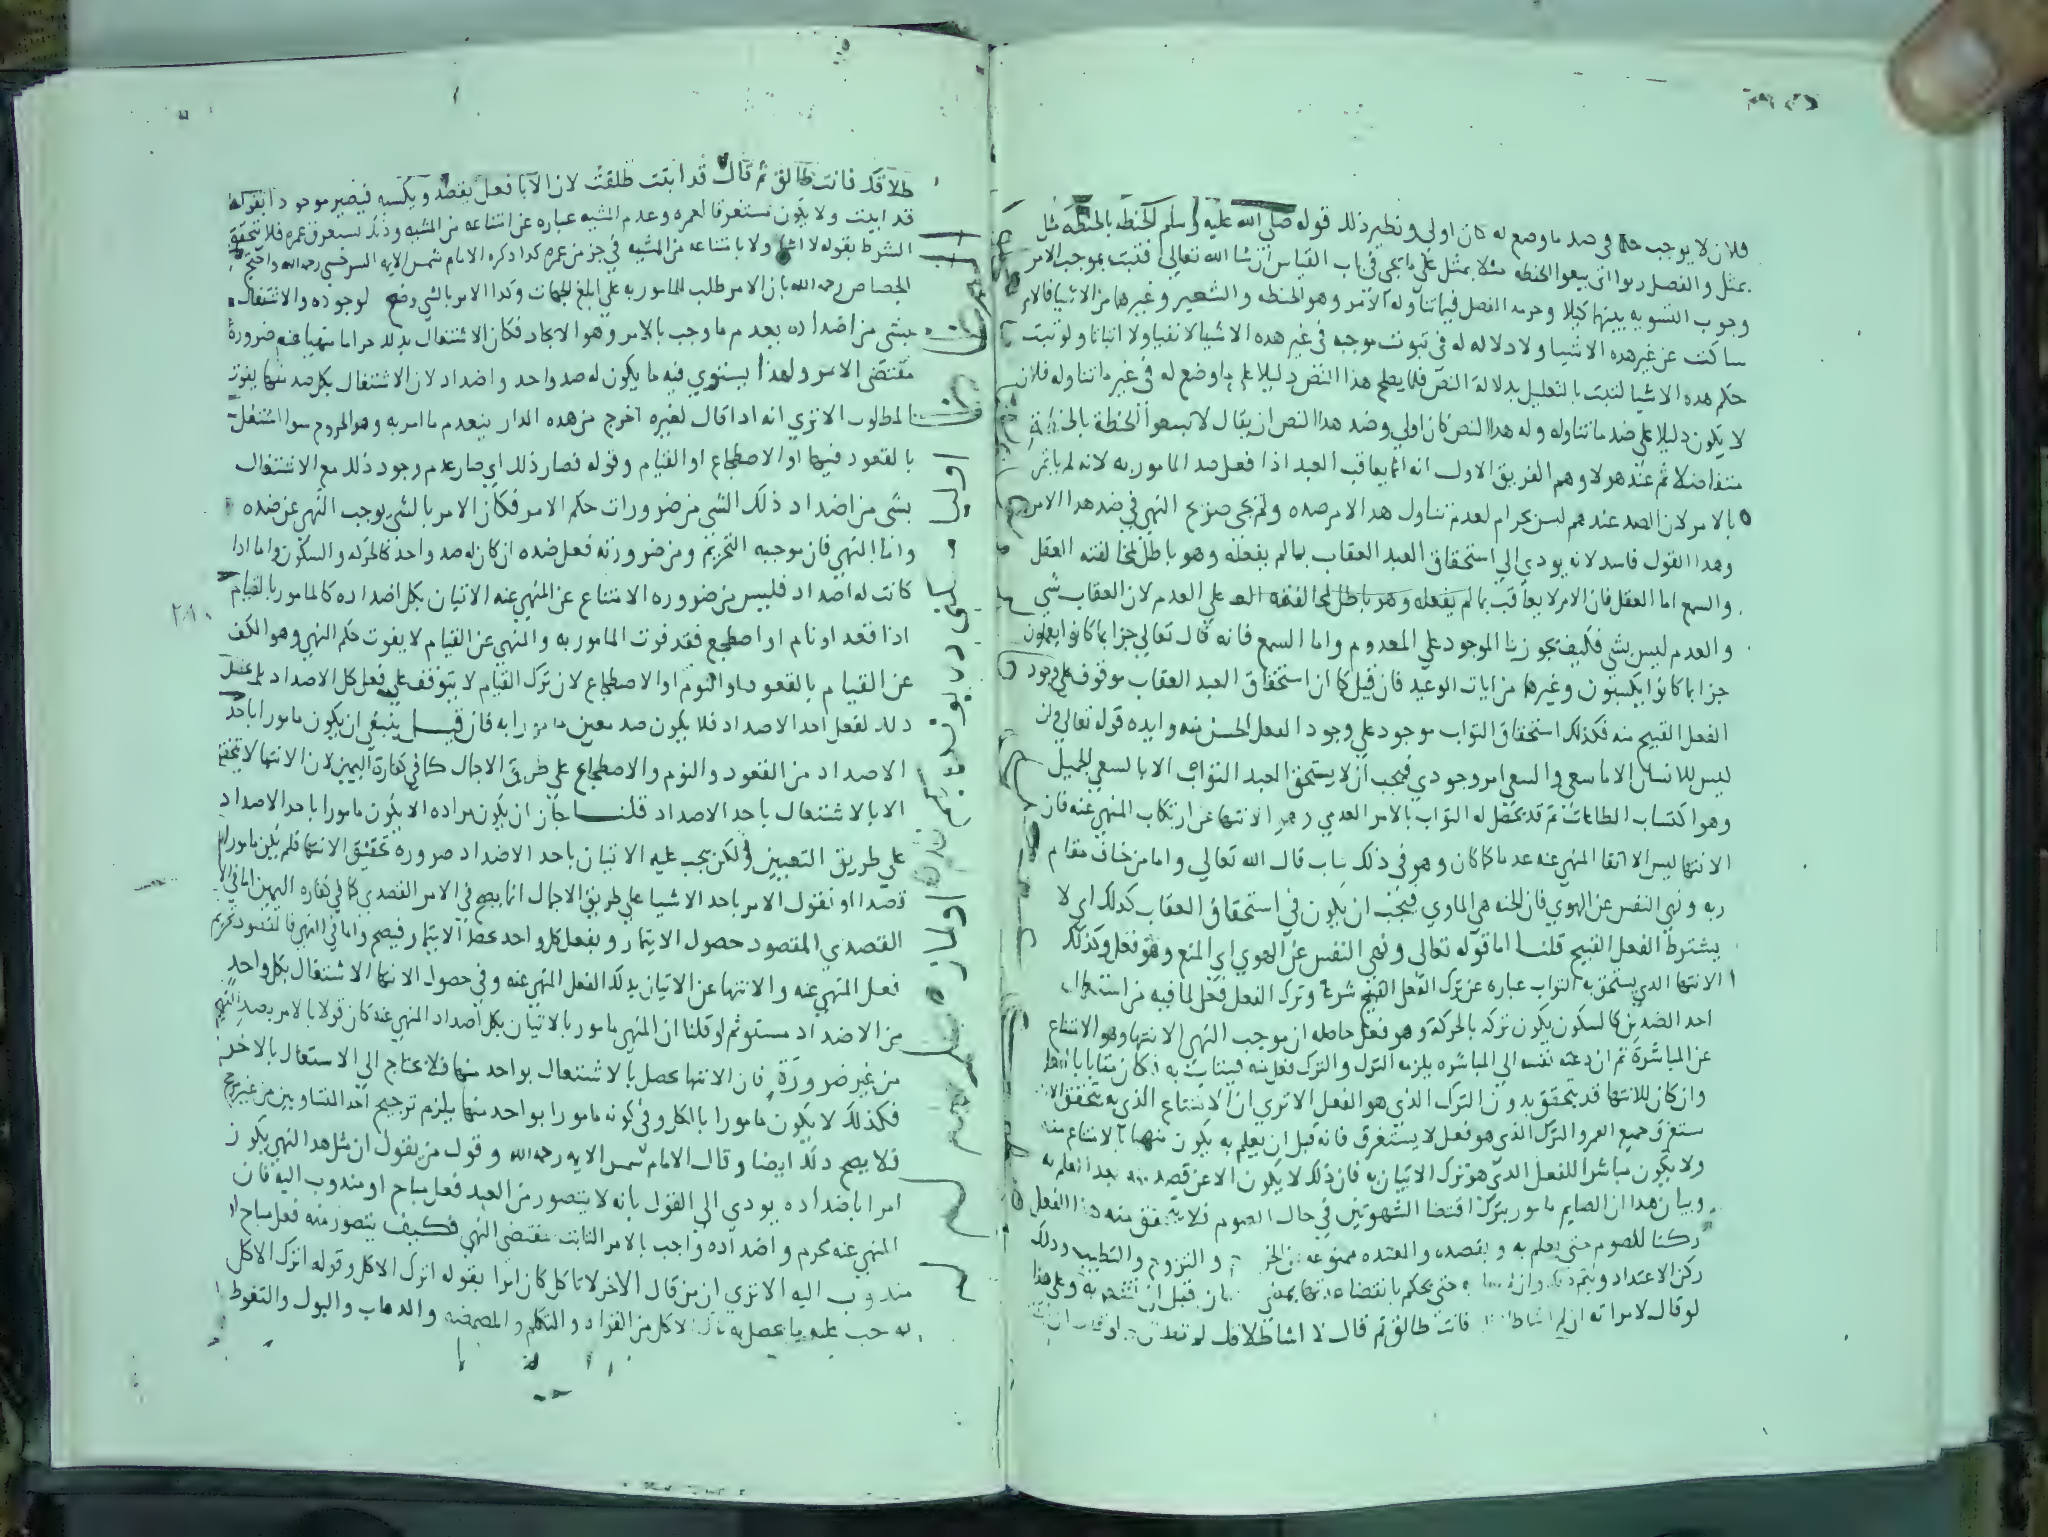 فلان لا يوجب حكما في ضد ما وضع له كان اولى ونظير ذلك قوله صلى الله عليه وسلم الحنطه بالحنطه مثل
بمثل والفضل ربوا اى بيعوا الحنطه مثلا بمثل على ما يجى في باب القياس ان شا الله تعالى فثبت بموجب الامر
وجوب التسويه بينهما كيلا وحرمه الفضل فيما تناوله الامر وهو الحنطه والشعير وغيرهما من الاشيا فالامر
ساكت عن غير هده الاشيا ولا دلاله له في ثبوت موجبه في غير هده الاشيا لا نفيا ولا اثباتا ولو ثبت
حكم هده الاشيا لثبت بالتعليل بدلالة النص فلما يصلح هذا النص دليلا على ما وضع له في غير ما تناوله فلان
لا يكون دليلا على ضد ما تناوله وله هدا النص كان اولى وضد هدا النص ان يقال لا تبيعوا الحنطة بالحنطة
متفاضلا ثم عند هولا وهم الفريق الاول انه انما يعاقب العبد اذا فعل ضد المامور به لانه لم ياتمر
بالامر لان الضد عندهم ليس بحرام لعدم تناول هدا الامر ضده ولم يجى صريح النهي في ضد هدا الامر
وهدا القول فاسد لانه يودي الى استحقاق العبد العقاب بما لم يفعله وهو باطل لمخالفته العقل
والسمع اما العقل فان الامر لا يعاقب بما لم يفعله وهو باطل لمخالفته العـ على العدم لان العقاب شي
والعدم ليس بشي فكيف يجوز بنا الموجود على المعدوم واما السمع فانه قال تعالى جزا بما كانوا يعملون
جزا بما كانوا يكسبون وغيرها من ايات الوعيد فان قيل كما ان استحقاق العبد العقاب موقوف على وجود
الفعل القبيح منه فكذلك استحقاق الثواب موجود على وجود الفعل الحسن منه وايده قوله تعالى وان
ليس للانسان الا ما سعى والسعي امر وجودي فيجب ان لا يستحق العبد الثواب الا بالسعي الجميل
وهو اكتساب الطاعات ثم قد يحصل له الثواب بالامر العدمي وهو الانتها عن ارتكاب المنهي عنه فان
الانتها ليس الا اتقا المنهي عنه عدما كما كان وهو في ذلك يثاب قال الله تعالى واما من خاف مقام
ربه ونهى النفس عن الهوي فان الجنه هي الماوي فيجب ان يكون في استحقاق العقاب كدلك اي لا
يشترط الفعل القبيح قلنا اما قوله تعالى ونهى النفس عن الهوي اي المنع وهو فعل وكذلك
الانتها الدي يستحق به الثواب عباره عن ترك الفعل القبيح شرعا وترك الفعل فعل لما فيه من استعمال
احد الضدين كالسكون يكون تركه بالحركة وهو فعل حاصله ان موجب النهي الانتها وهو الامتناع
عن المباشرة ثم ان دعته نفسه الى المباشره يلزمه الترك والترك فعل منه فيثاب به
وان كان للانتها قد يتحقق بدون الترك الذي هو الفعل الا تري ان الامتناع الذي به يتحقق الانتها
يستغرق جميع العمر والترك الذي هو فعل لا يستغرق فانه قبل ان يعلم به يكون منتهيا بالامتناع منه
ولا يكون مباشرا للفعل الدي هو ترك الاتيان به فان ذلك لا يكون الا عن قصد منه بعد العلم به
وبيان هدا ان الصايم مامور بترك اقتضا الشهوتين في حال الصوم فلا يتحقق منه هذا الفعل
ركنا للصوم حتى يعلم به ويقصده والمعتده ممنوعه من الخروج والتزوج والتطيب ودلك
ركن الاعتداد حتى يحكم بانقضا عدتها قبل ان تشعر به وعلى هذا
لو قال لامراته ان لم اشا طلاقك فانت طالق ثم قال لا اشا طلاقك لم تطلق
طلاقك فانت طالق ثم قال قد ابيت طلقت لان الابا فعل بقصد ويكسبه فيصير موجودا بقوله
قد ابيت ولا يكون مستغرقا لعمره وعدم المشيه عباره عن امتناعه من المشيه وذلك يستغرق عمره فلا يتحقق
الشرط بقوله لا اشا ولا بامتناعه من المشيه في جز من عمره كدا دكره الامام شمس الايمه السرخسي رحمه الله واحتج
الجصاص رحمه الله بان الامر طلب المامور به على ابلغ الجهات وكدا الامر بالشي وضع لوجوده والاشتغال
بشي من اضداده يعدم ما وجب بالامر وهو الايجاد فكان الاشتغال بدلك حراما منهيا عنه ضرورة
مقتضى الامر ولهذا يستوي فيه ما يكون له ضد واحد واضداد لان الاشتغال بكل ضد منها يفوت
المطلوب الا تري انه ادا قال لغيره اخرج من هده الدار ينعدم ما امر به وهو الخروج سوا اشتغل
بالقعود فيها او الاضطجاع او القيام وقوله فصار ذلك اي صار عدم وجود ذلك مع الاشتغال
بشى من اضداد ذلك الشي من ضرورات حكم الامر فكان الامر بالشي يوجب النهي عن ضده
واما النهي فان موجبه التحريم ومن ضرورته فعل ضده ان كان له ضد واحد كالحركه والسكون واما ادا
كانت له اضداد فليس من ضروره الامتناع عن المنهي عنه الاتيان بكل اضداده كالمامور بالقيام
اذا قعد او نام او اضطجع فقد فوت المامور به والمنهي عن القيام لا يفوت حكم النهي وهو الكف
عن القيام بالقعود او النوم او الاضطجاع لان ترك القيام لا يتوقف على فعل كل الاضداد بل يحصل
دلك لفعل احد الاضداد فلا يكون ضد معين مامورا به فان قيل ينبغي ان يكون مامورا باحد
الاضداد من القعود والنوم والاضطجاع على طريق الاجمال كما في كفارة اليمين لان الانتها لا يتحقق
الا بالاشتغال باحد الاضداد قلنا جاز ان يكون مراده الا يكون مامورا باحد الاضداد
على طريق التعيين ولكن يجب عليه الاتيان باحد الاضداد ضرورة تحقيق الانتها فلم يكن مامورا به
قصدا او نقول الامر باحد الاشيا على طريق الاجمال انما يصح في الامر القصدي كما في كفاره اليمين اما في الامر
القصدي المقصود حصول الايتمار وبفعل كل واحد يحصل الايتمار فيصح واما في النهي فالمقصود تحريم
فعل المنهي عنه والانتها عن الاتيان بدلك الفعل المنهي عنه وفي حصول الانتها الاشتغال بكل واحد
من الاضداد مستو ثم لو قلنا ان المنهي مامور بالاتيان بكل اضداد المنهي عنه كان قولا بالامر بضد النهي
من غير ضرورة فان الانتها يحصل بالاشتغال بواحد منها فلا يحتاج الى الاشتغال بالاخر
فكذلك لا يكون مامورا بالكل وفي كونه مامورا بواحد منها يلزم ترجيح احد المتساويين من غير مرجح
فلا يصح دلك ايضا وقال الامام شمس الايمه رحمه الله وقول من يقول ان مثل هدا النهي يكون
امرا باضداده يودي الى القول بانه لا يتصور من العبد فعل مباح او مندوب اليه فان
المنهي عنه محرم واضداده واجب بالامر الثابت بمقتضى النهي فكيف يتصور منه فعل مباح او
مندوب اليه الا تري ان من قال لاخر لا تاكل كان امرا بقوله اترك الاكل وقوله اترك الاكل
الاكل من القراه والتكلم والمضمضه والدهاب والبول والتغوط